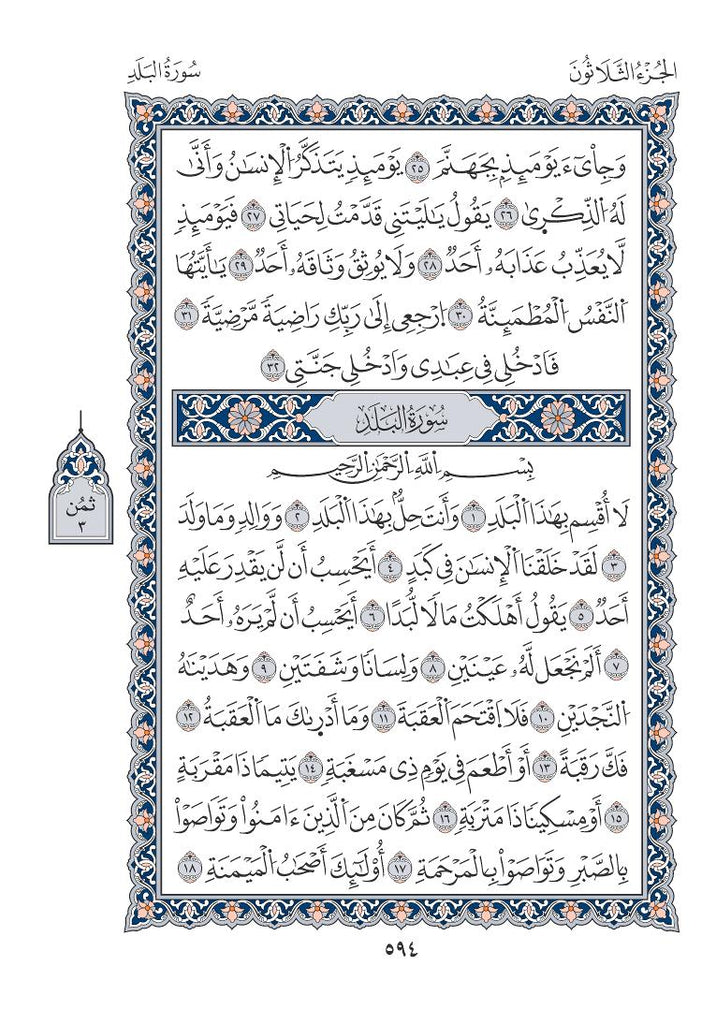 الجُزْءُ الثَّلَاثُونَ
سُورَةُ البَلَدِ
وَجِاْيٓءَ يَوْمَئِذِۭ بِجَهَنَّمَ ٢٥ يَوْمَئِذٖ يَتَذَكَّرُ اُ۬لْإِنسَٰنُ وَأَنّ۪يٰ
لَهُ اُ۬لذِّكْر۪يٰ ٢٦ يَقُولُ يَٰلَيْتَنِے قَدَّمْتُ لِحَيَاتِے ٢٧ فَيَوْمَئِذٖ
لَّا يُعَذِّبُ عَذَابَهُۥٓ أَحَدٞ ٢٨ وَلَا يُوثِقُ وَثَاقَهُۥٓ أَحَدٞ ٢٩ يَٰٓأَيَّتُهَا
اَ۬لنَّفْسُ اُ۬لْمُطْمَئِنَّةُ ٣٠ اُ۪رْجِعِےٓ إِلَيٰ رَبِّكِ رَاضِيَةٗ مَّرْضِيَّةٗ ٣١
فَادْخُلِے فِے عِبَٰدِے وَادْخُلِے جَنَّتِے ٣٢
سُورَةُ البَلَدِ
بِسْمِ اِ۬للَّهِ اِ۬لرَّحْمَٰنِ اِ۬لرَّحِيمِ
لَآ أُقْسِمُ بِهَٰذَا اَ۬لْبَلَدِ ١ وَأَنتَ حِلُّۢ بِهَٰذَا اَ۬لْبَلَدِ ٢ وَوَالِدٖ وَمَا وَلَدَ
٣ لَقَدْ خَلَقْنَا اَ۬لْإِنسَٰنَ فِے كَبَدٍ ٤ أَيَحْسِبُ أَن لَّنْ يَّقْدِرَ عَلَيْهِ
أَحَدٞ ٥ يَقُولُ أَهْلَكْتُ مَالٗا لُّبَدًا ٦ أَيَحْسِبُ أَن لَّمْ يَرَهُۥٓ أَحَدٌ
٧ أَلَمْ نَجْعَل لَّهُۥ عَيْنَيْنِ ٨ وَلِسَانٗا وَشَفَتَيْنِ ٩ وَهَدَيْنَٰهُ
اُ۬لنَّجْدَيْنِ ١٠ فَلَا اَ۪قْتَحَمَ اَ۬لْعَقَبَةَ ١١ وَمَآ أَدْر۪ىٰكَ مَا اَ۬لْعَقَبَةُ ١٢
فَكَّ رَقَبَةً ١٣ أَوْ أَطْعَمَ فِے يَوْمٖ ذِے مَسْغَبَةٖ ١٤ يَتِيمٗا ذَا مَقْرَبَةٍ
١٥ أَوْ مِسْكِينٗا ذَا مَتْرَبَةٖ ١٦ ثُمَّ كَانَ مِنَ اَ۬لذِينَ ءَامَنُواْ وَتَوَاصَوْاْ
بِالصَّبْرِ وَتَوَاصَوْاْ بِالْمَرْحَمَةِ ١٧ أُوْلَٰٓئِكَ أَصْحَٰبُ اُ۬لْمَيْمَنَةِ ١٨
ثُمُن
٣
٥٩٤